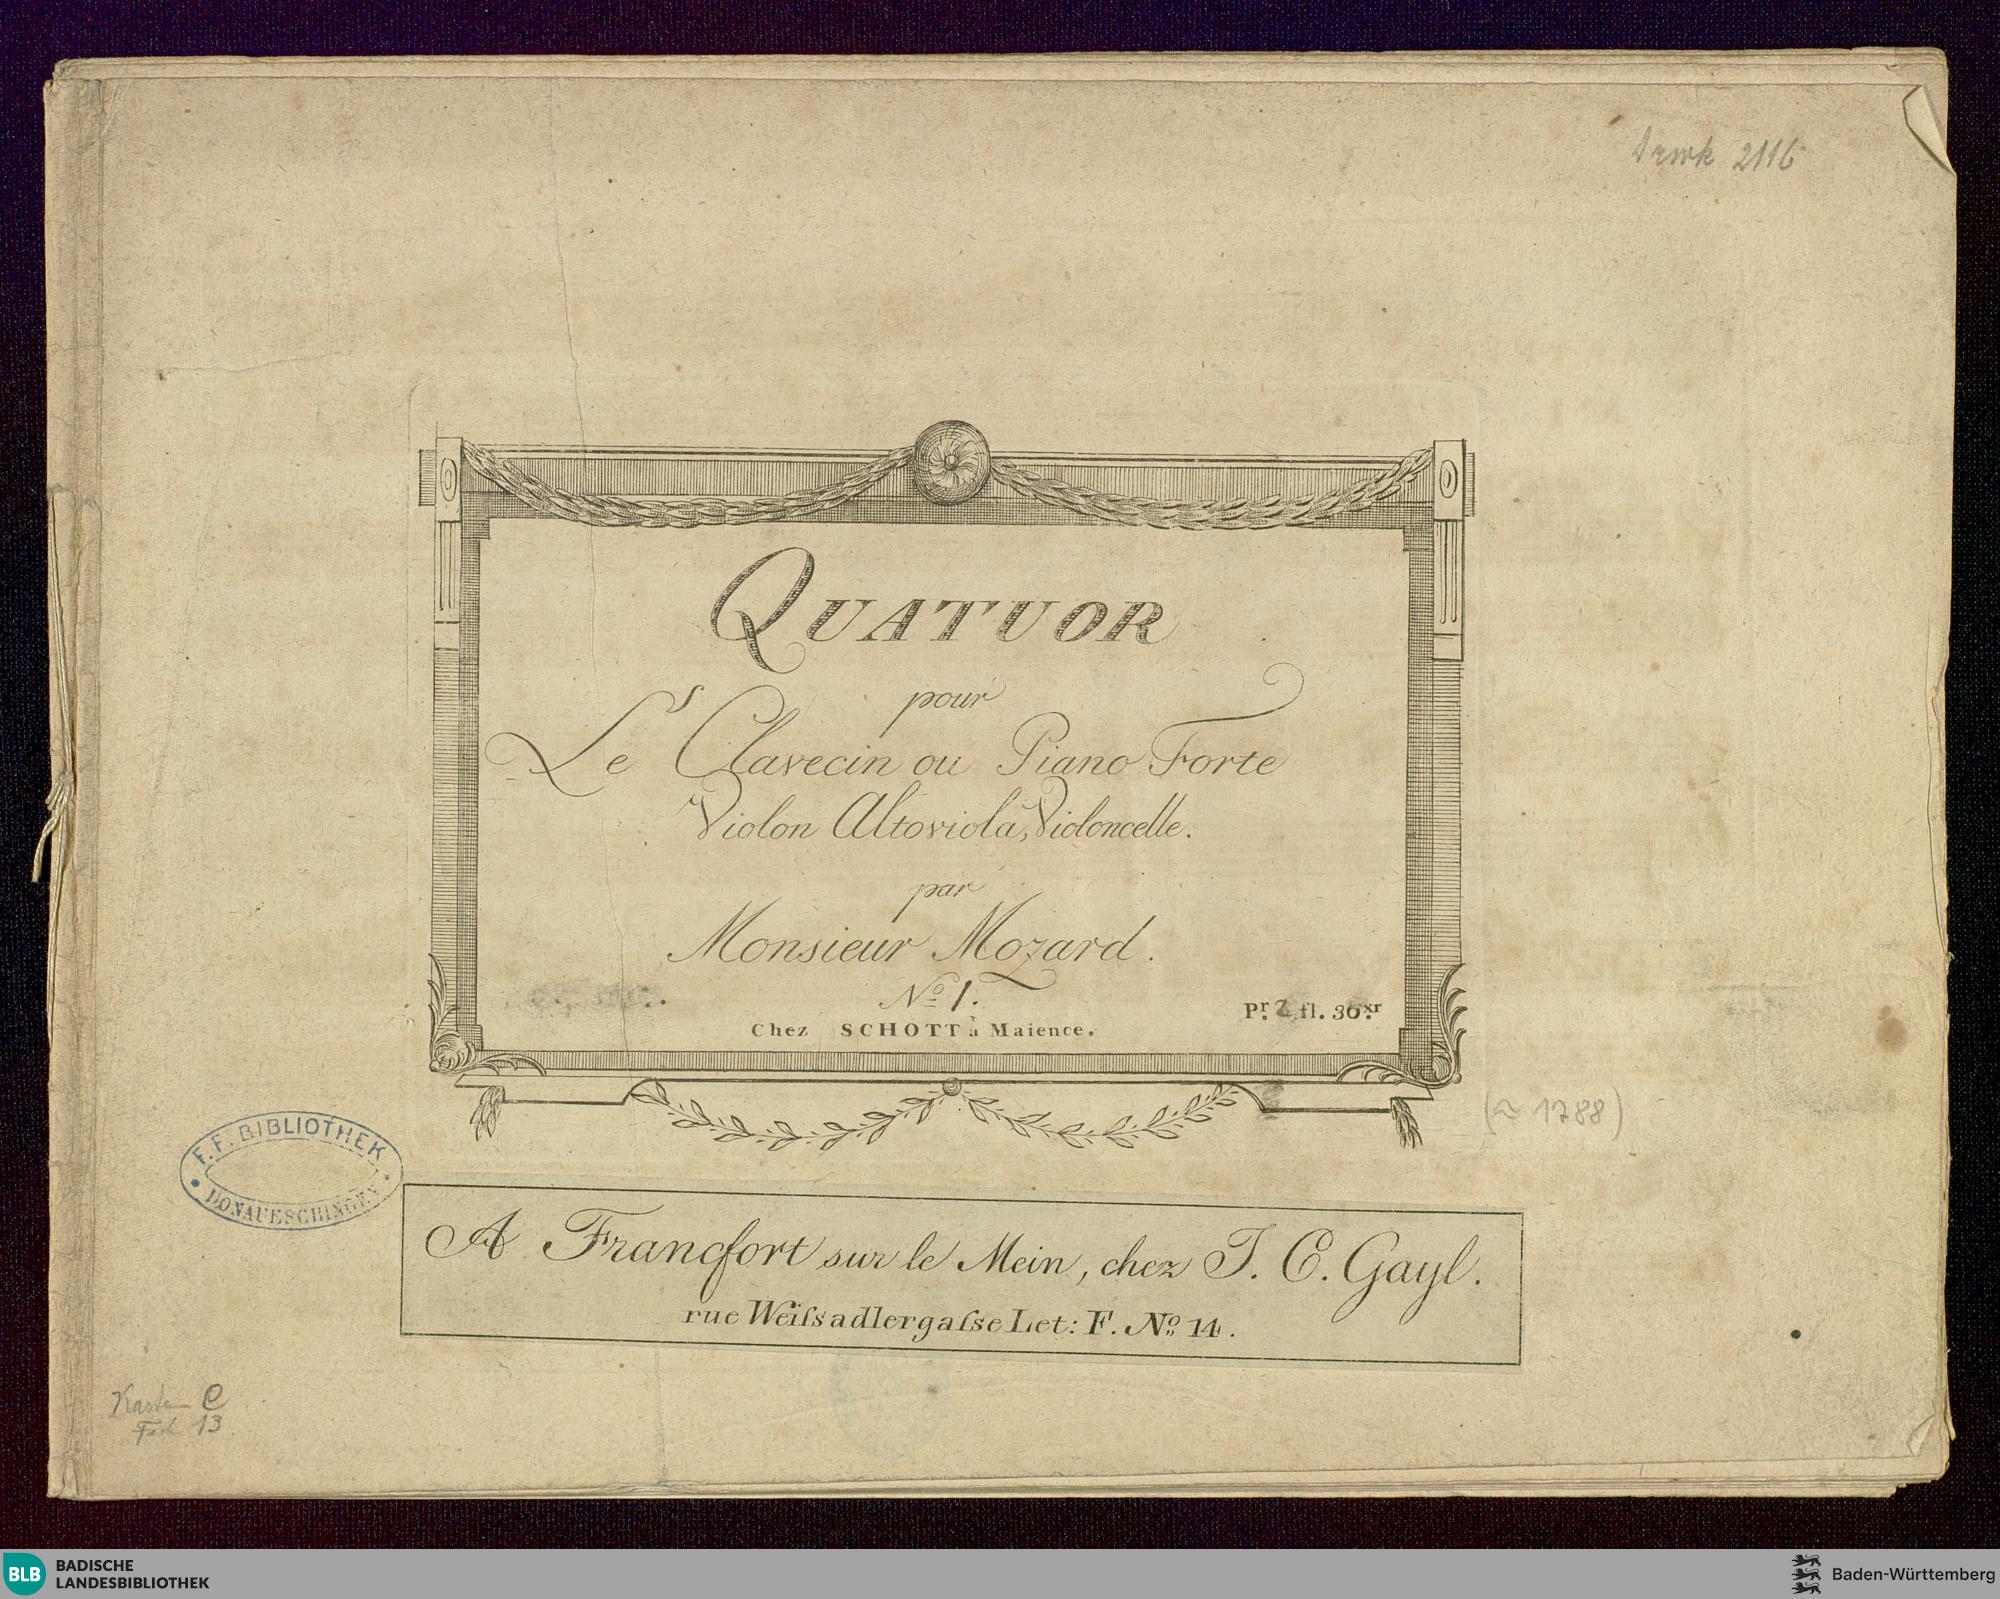 Drwk 2116
QUATUOR
pour
Le Clavecin ou Piano Forte
Violon Altoviola, Violoncelle.
par
Monsieur Mozard.
No 1.
Pr. 2 fl. 30 xr
Chez SCHOTT à Maience.
(≈ 1788)
F. F. BIBLIOTHEK
DONAUESCHINGEN
A Francfort sur le Mein, chez J. C. Gayl.
rue Weiſsadlergaſse Let: F. No 14.
Kasten C
Fach 13
BLB BADISCHE
LANDESBIBLIOTHEK
Baden-Württemberg